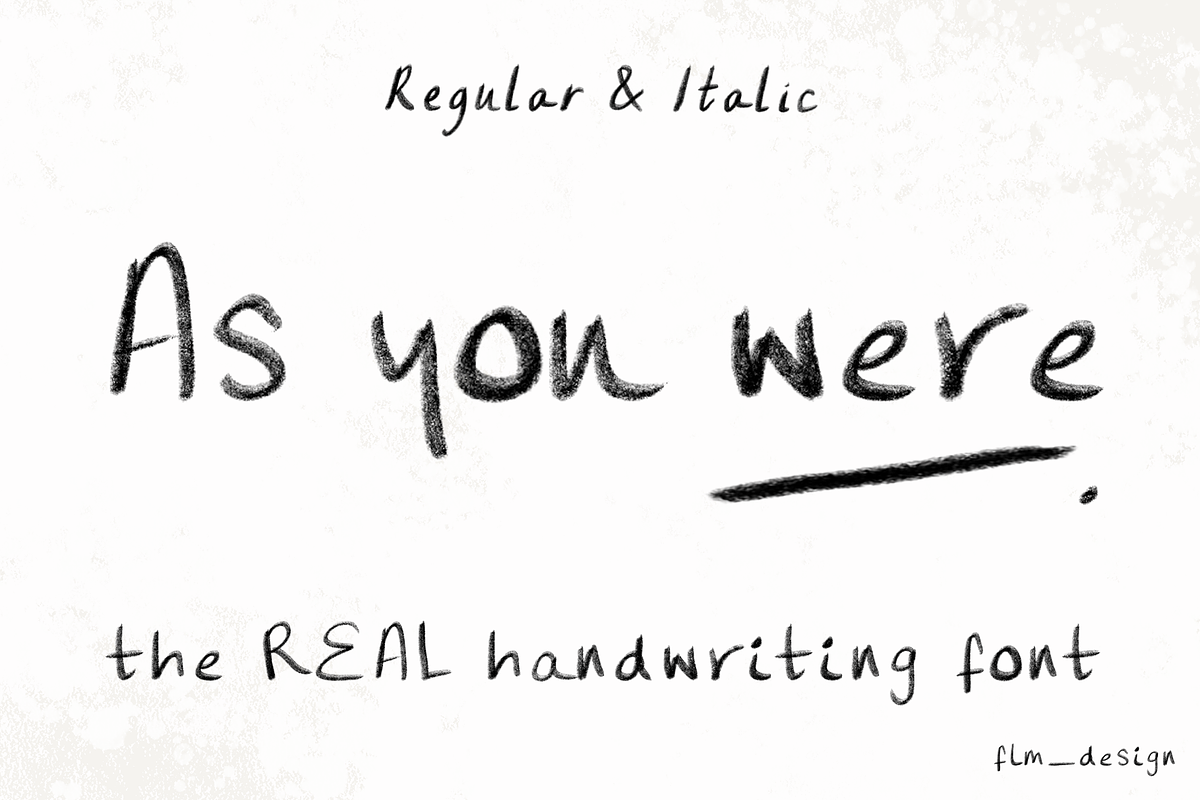 Regular & Italic
As you were
.
the REAL handwriting font
flm_design